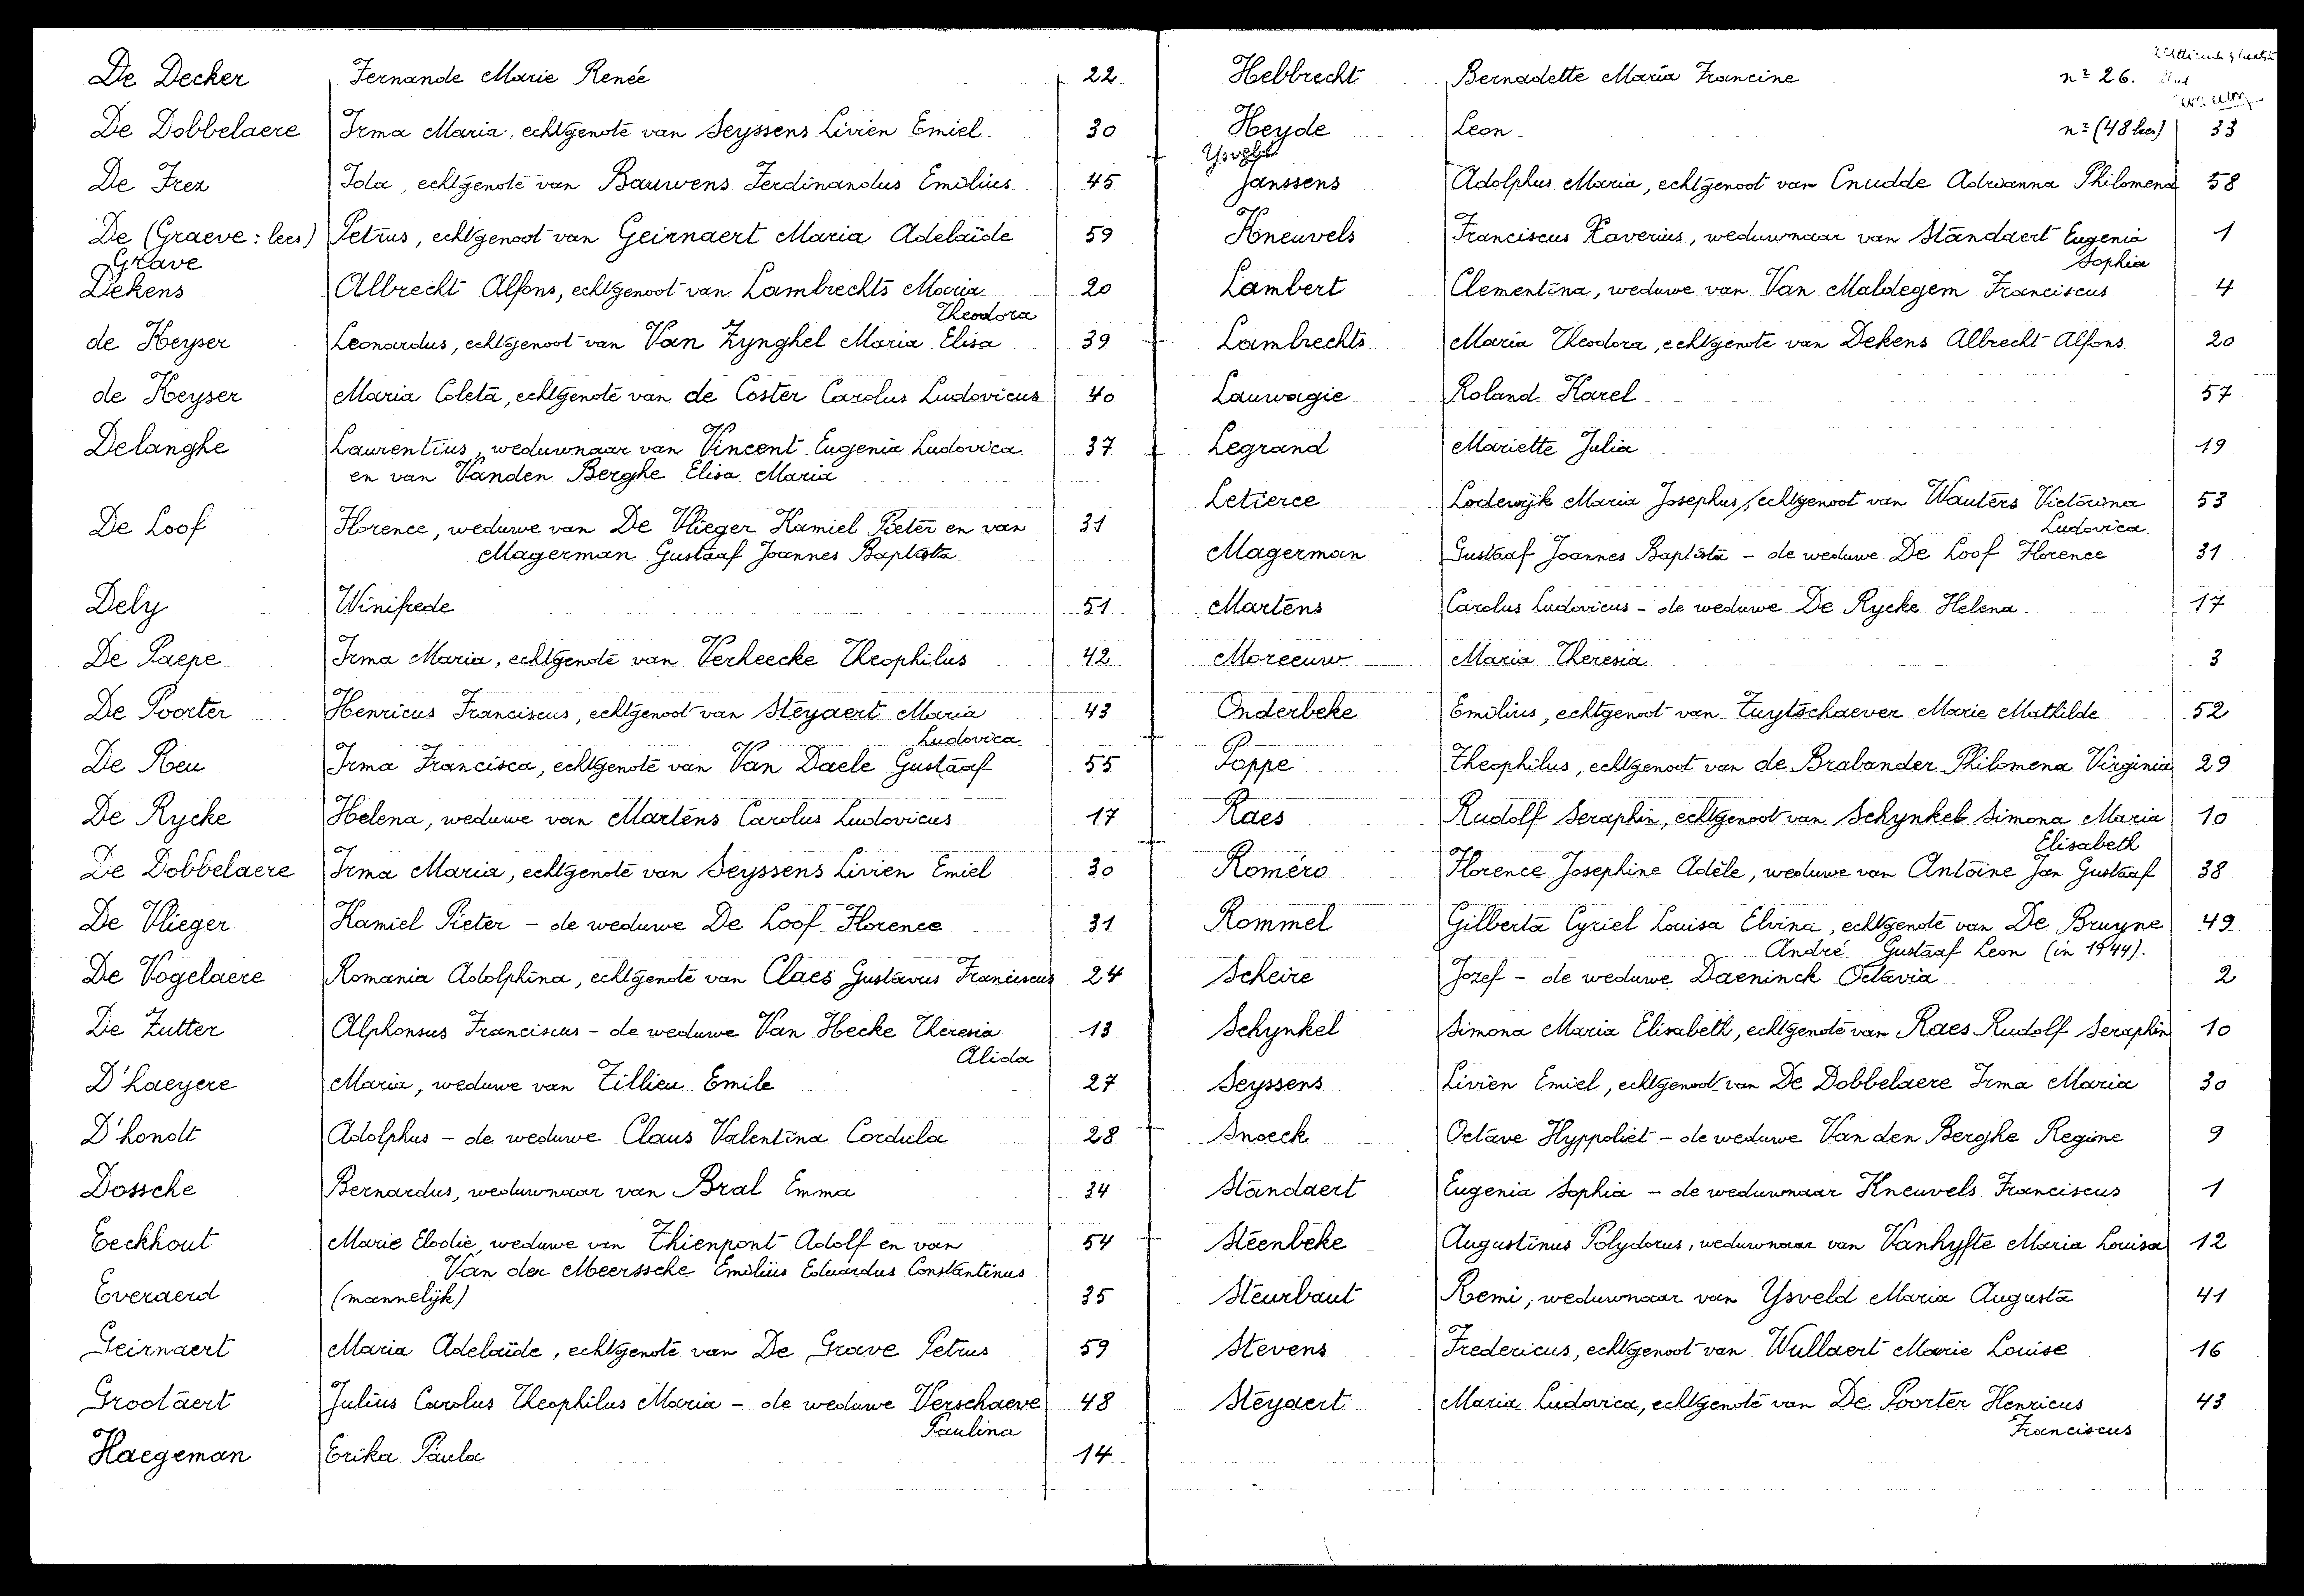 De Decker Fernande Marie Renée 22
De Dobbelaere Irma Maria, echtgenote van Seyssens Livien Emiel. 30
De Frez Ida, echtgenote van Bauwens Ferdinandus Emilius 45
De (Graeve: lees) Petrus, echtgenoot van Geirnaert Maria Adelaïde 59
Grave
Dekens Albrecht Alfons, echtgenoot van Lambrechts Maria 20
Theodora
de Keyser Leonardus, echtgenoot van Van Zynghel Maria Elisa 39
de Keyser Maria Coleta, echtgenote van de Coster Carolus Ludovicus 40
Delanghe Laurentius, weduwnaar van Vincent Eugenia Ludovica 37
en van Vanden Berghe Elisa Maria
De Loof Florence, weduwe van De Vlieger Kamiel Pieter en van 31
Magerman Gustaaf Joannes Baptista
Dely Winifrede 51
De Paepe Irma Maria, echtgenote van Verheecke Theophilus 42
De Poorter Henricus Franciscus, echtgenoot van Steyaert Maria 43
Ludovica
De Reu Irma Francisca, echtgenote van Van Daele Gustaaf 55
De Rycke Helena, weduwe van Martens Carolus Ludovicus 17
De Dobbelaere Irma Maria, echtgenote van Seyssens Livien Emiel 30
De Vlieger Kamiel Pieter - de weduwe De Loof Florence 31
De Vogelaere Romania Adolphina, echtgenote van Claes Gustavus Franciscus 24
De Zutter Alphonsus Franciscus - de weduwe Van Hecke Theresia 13
Alida
D'haeyere Maria, weduwe van Tillieu Emile 27
D'hondt Adolphus - de weduwe Claus Valentina Cordula 28
Dossche Bernardus, weduwnaar van Bral Emma 34
Eeckhout Marie Elodie, weduwe van Thienpont Adolf en van 54
Van der Meerssche Emilius Eduardus Constantinus
Everaerd (mannelijk) 35
Geirnaert Maria Adelaïde, echtgenote van De Grave Petrus 59
Grootaert Julius Carolus Theophilus Maria - de weduwe Verschaeve 48
Paulina
Haegeman Erika Paula 14
Hebbrecht Bernadette Maria Francine nº 26.
Heyde Leon nº (48 bis) 33
Janssens Adolphus Maria, echtgenoot van Cnudde Adrianna Philomena 58
Kneuvels Franciscus Xaverius, weduwnaar van Standaert Eugenia 1
Sophia
Lambert Clementina, weduwe van Van Maldegem Franciscus 4
Lambrechts Maria Theodora, echtgenote van Dekens Albrecht Alfons 20
Lauwagie Roland Karel 57
Legrand Mariette Julia 19
Letierce Lodewijk Maria Josephus, echtgenoot van Wauters Victorina 53
Ludovica
Magerman Gustaaf Joannes Baptista - de weduwe De Loof Florence 31
Martens Carolus Ludovicus - de weduwe De Rycke Helena 17
Moreeuw Maria Theresia 3
Onderbeke Emilius, echtgenoot van Tuytschaever Marie Mathilde 52
Poppe Theophilus, echtgenoot van de Brabander Philomena Virginia 29
Raes Rudolf Seraphin, echtgenoot van Schynkel Simona Maria 10
Elisabeth
Roméro Florence Josephine Adèle, weduwe van Antoine Jan Gustaaf 38
Rommel Gilberta Cyriel Louisa Elvina, echtgenote van De Bruyne 49
André Gustaaf Leon (in 1944).
Scheire Jozef - de weduwe Daeninck Octavia 2
Schynkel Simona Maria Elisabeth, echtgenote van Raes Rudolf Seraphin 10
Seyssens Livien Emiel, echtgenoot van De Dobbelaere Irma Maria 30
Snoeck Octave Hyppoliet - de weduwe Van den Berghe Regine 9
Standaert Eugenia Sophia - de weduwnaar Kneuvels Franciscus 1
Steenbeke Augustinus Polydorus, weduwnaar van Vanhyfte Maria Louisa 12
Steurbaut Remi, weduwnaar van Ysveld Maria Augusta 41
Stevens Fredericus, echtgenoot van Wullaert Marie Louise 16
Steyaert Maria Ludovica, echtgenote van De Poorter Henricus 43
Franciscus